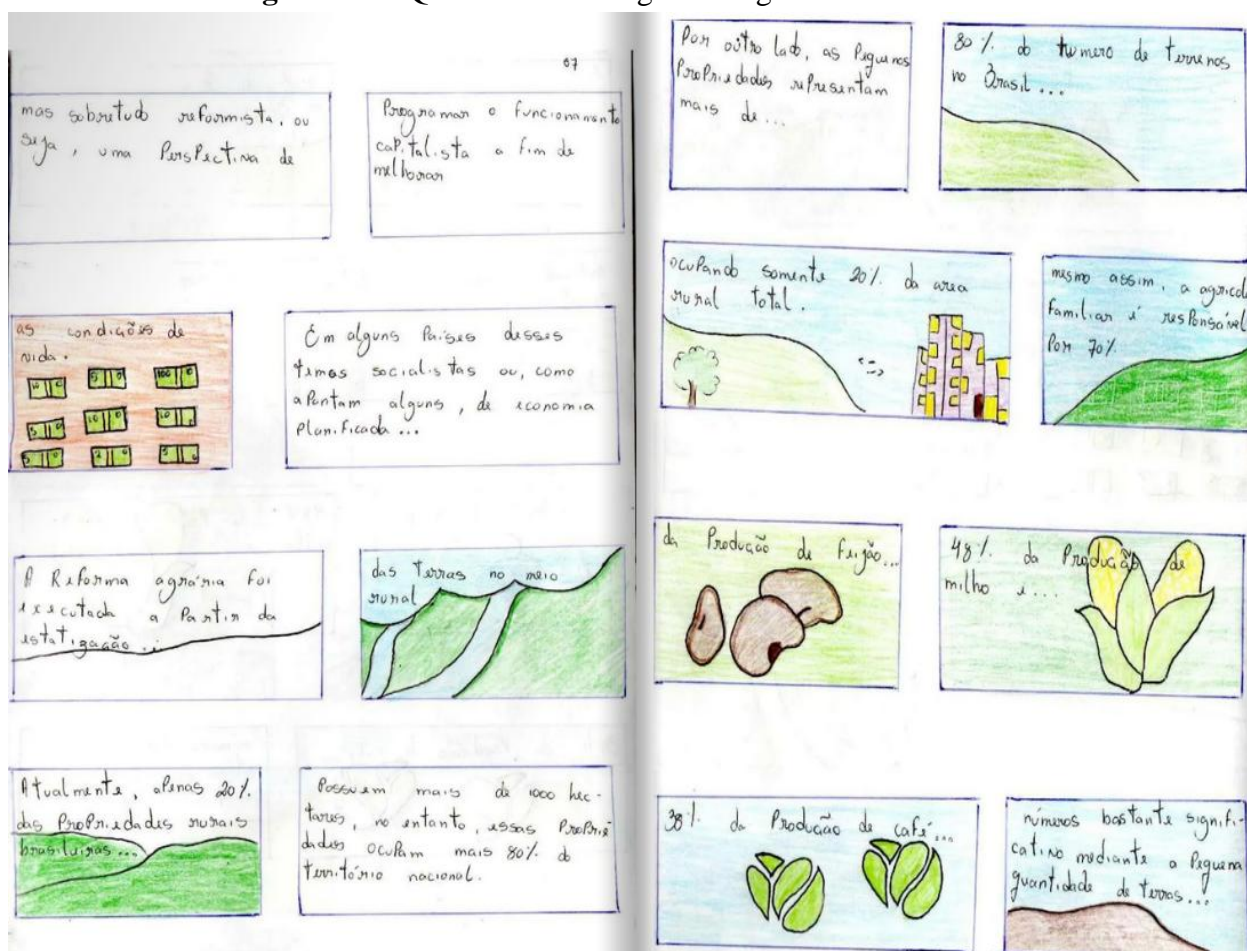 07
mas sobretudo reformista, ou
seja, uma Perspectiva de
Programar o funcionamento
capitalista a fim de
melhorar
as condições de
vida.
Em alguns Países desses
temos socialistas ou, como
aPontam alguns, de economia
Planificada ...
A Reforma agrária foi
executada a Partir da
estatização ...
das Terras no meio
rural
Atualmente, aPenas 20%
das ProPriedades rurais
brasileiras ...
Possuem mais de 1000 hec-
tares, no entanto, essas ProPrie
dades ocuPam mais 80% do
território nacional.
Por outro lado, as Pequenas
ProPriedades rePresentam
mais de ...
80% do numero de terrenos
no Brasil ...
ocuPando somente 20% da area
rural total.
mesmo assim, a agricol
familiar é resPonsável
Por 70%
da Produção de feijão...
48% da Produção de
milho e ...
38% da Produção de café...
números bastante signifi-
cativo mediante a Pequena
quantidade de terras...